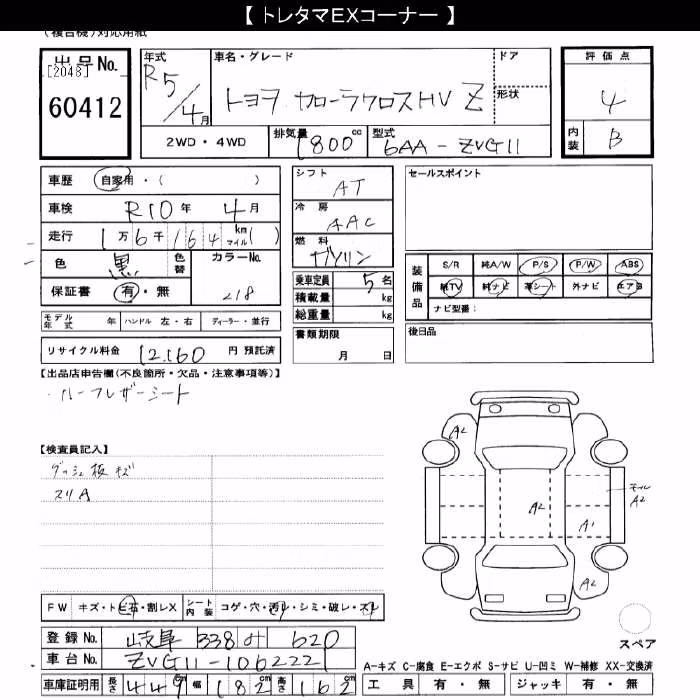 【 トレタマEXコーナー 】
(複合機)対応用紙
出品No.
[2048]
60412
年式
R5/4月
車名・グレード
トヨタ カローラクロスHV Z
ドア
形状
2WD・4WD
排気量 1800 cc
型式 6AA-ZVG11
評価点
4
内装 B
車歴 自家用・( )
車検 R10年 4月
走行 1万6千164 km マイル( )
色 黒 色替
カラーNo. 218
保証書 有・無
モデル年式 年 ハンドル 左・右 ディーラー・並行
リサイクル料金 12,160 円 預託済
シフト AT
冷房 AAC
燃料 ガソリン
乗車定員 5名
積載量 kg
総重量 kg
書類期限
月 日
セールスポイント
装備品
S/R 純A/W P/S P/W ABS
純TV 純ナビ 革シート 外ナビ エアB
ナビ型番:
後日品
【出品店申告欄(不良箇所・欠品・注意事項等)】
・ハーフレザーシート
【検査員記入】
ダッシュ板キズ
スリA
A2
A2
モール A2
A1
A2
FW キズ・トビ石・割レX
シート内装 コゲ・穴・汚レ・シミ・破レ・スレ
登録No. 岐阜 338 せ 620
車台No. ZVG11-1062221
車庫証明用 長さ 449cm 幅 182cm 高さ 162cm
スペア
A-キズ C-腐食 E-エクボ S-サビ U-凹ミ W-補修 XX-交換済
工具 有・無 ジャッキ 有・無